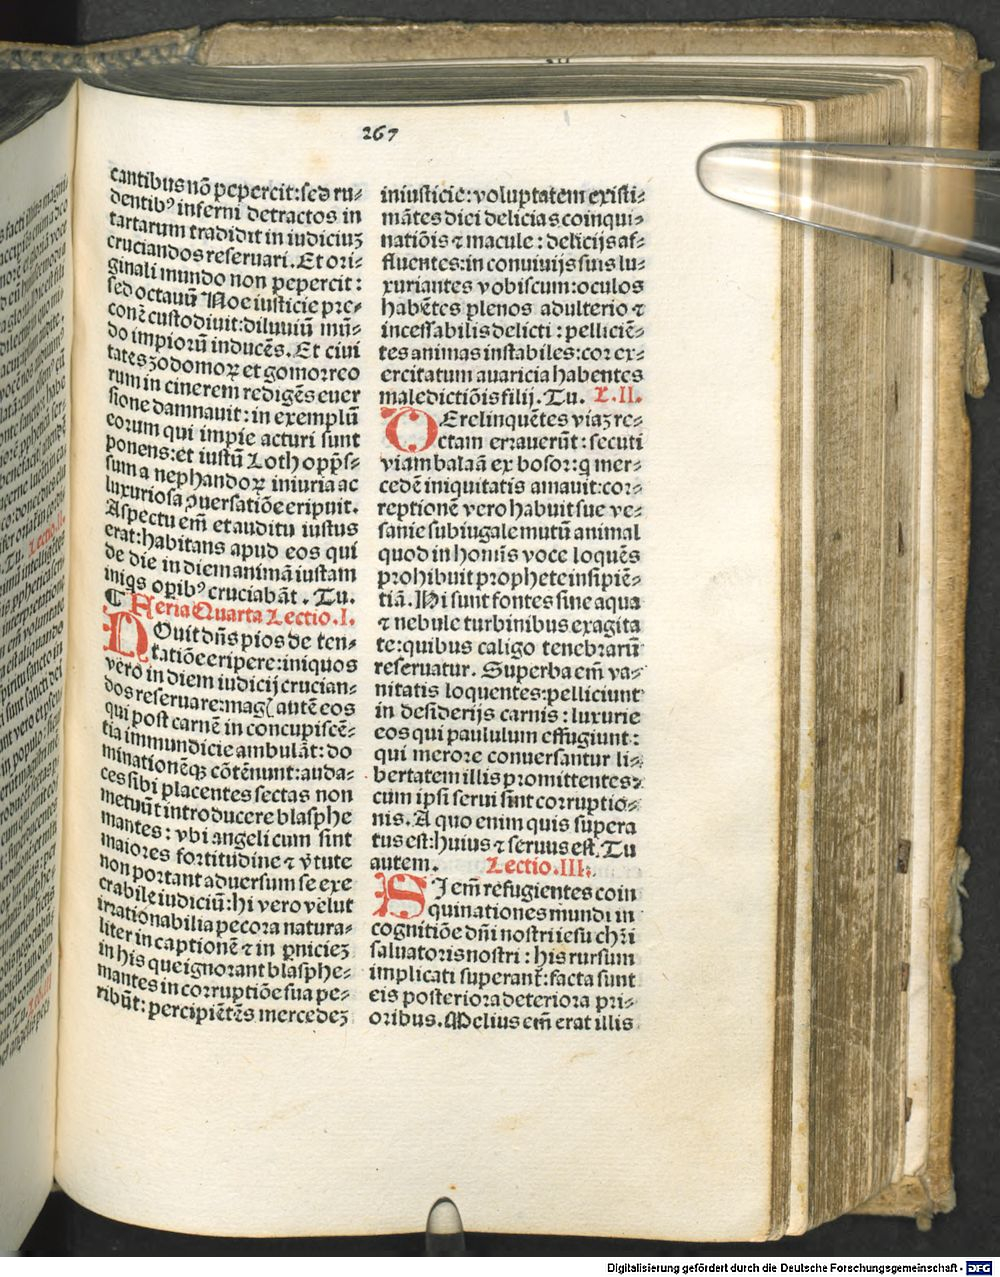 267
cantibus nō pepercit: sed ru⸗
dentibꝰ inferni detractos in
tartarum tradidit in iudiciuʒ
cruciandos reseruari. Et ori⸗
ginali mundo non pepercit:
sed octauū Noe iusticie pre⸗
conē custodiuit: diluuiū mū⸗
do impiorū inducēs. Et ciui
tates zodomoꝝ et gomorreo
rum in cinerem redigēs euer
sione damnauit: in exemplū
eorum qui impie acturi sunt
ponens: et iustū Loth opp̄s⸗
sum a nephandoꝝ iniuria ac
luxuriosa ꝯuersatiōe eripuit.
Aspectu em̄ et auditu iustus
erat: habitans apud eos qui
de die in diem animā iustam
iniqs opibꝰ cruciabāt. Tu.
¶ Feria Quarta Lectio .I.
NOuit dn̄s pios de ten⸗
tatiōe eripere: iniquos
vero in diem iudicij crucian⸗
dos reseruare: mag[ autē eos
qui post carnē in concupiscē⸗
tia immundicie ambulāt: do
minationēqꝫ cōtēnunt: auda⸗
ces sibi placentes sectas non
metuūt introducere blasphe
mantes: vbi angeli cum sint
maiores fortitudine ⁊ v̄tute
non portant aduersum se exe
crabile iudiciū: hi vero velut
irrationabilia pecora natura⸗
liter in captionē ⁊ in ꝑniciеʒ
in his que ignorant blasphe⸗
mantes in corruptiōe sua pe⸗
ribūt: percipiētēs mercedeʒ
iniusticie: voluptatem existi⸗
mātes diei delicias coinqui⸗
natiōis ⁊ macule: delicijs af⸗
fluentes: in conuiuijs suis lu⸗
xuriantes vobiscum: oculos
habētes plenos adulterio ⁊
incessabilis delicti: pelliciē⸗
tes animas instabiles: cor ex⸗
ercitatum auaricia habentes
maledictiōis filij. Tu. L.II.
DErelinquētes viaʒ re⸗
ctam errauerūt: secuti
viam balaā ex bosor: q mer⸗
cedē iniquitatis amauit: cor⸗
reptionē vero habuit sue ve⸗
sanie subiugale mutū animal
quod in homīs voce loquēs
prohibuit prophete insipiē⸗
tiā. Hi sunt fontes sine aqua
⁊ nebule turbinibus exagita
te: quibus caligo tenebrarū
reseruatur. Superba em̄ va⸗
nitatis loquentes: pelliciunt
in desiderijs carnis: luxurie
eos qui paululum effugiunt:
qui merore conuersantur li⸗
bertatem illis promittentes:
cum ipsi serui sint corruptio⸗
nis. A quo enim quis supera
tus est: huius ⁊ seruus est. Tu
autem. Lectio .III.
SI em̄ refugientes coin
quinationes mundi in
cognitiōe dn̄i nostri iesu chr̄i
saluatoris nostri: his rursum
implicati superanť: facta sunt
eis posteriora deteriora pri⸗
oribus. Melius em̄ erat illis
Digitalisierung gefördert durch die Deutsche Forschungsgemeinschaft - DFG